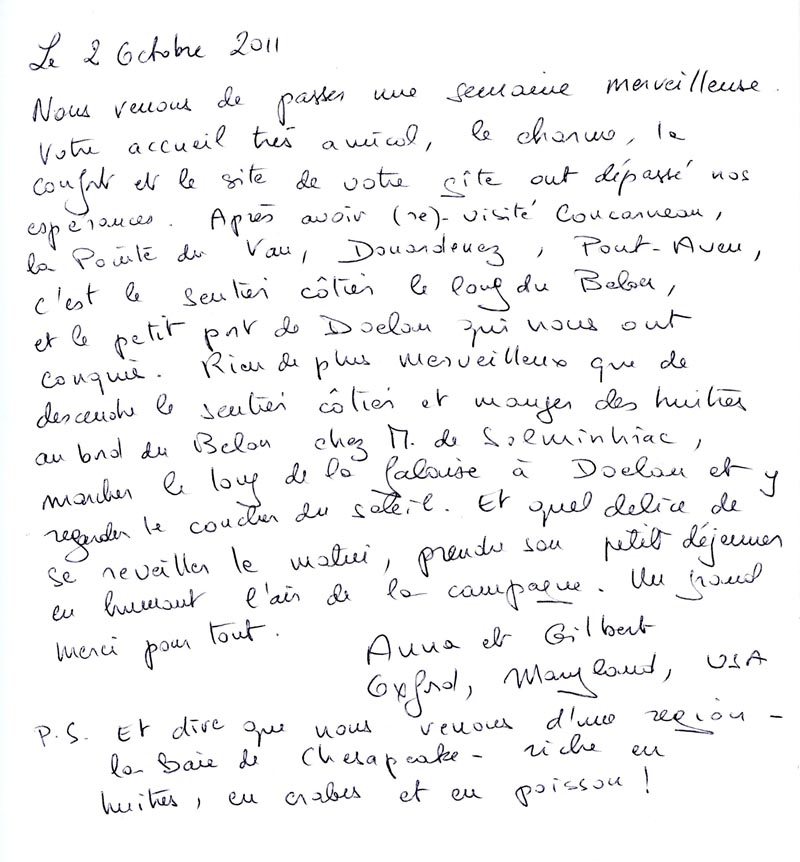 Le 2 Octobre 2011
Nous venons de passer une semaine merveilleuse.
Votre accueil très amical, le charme, le
confort et le site de votre gîte ont dépassé nos
espérances. Après avoir (re)-visité Concarneau,
la Pointe du Van, Douardenez, Pont-Aven,
c'est le sentier côtier le long du Belon,
et le petit port de Doelan qui nous ont
conquis. Rien de plus merveilleux que de
descendre le sentier côtier et manger des huitres
au bord du Belon chez M. de Solminhiac,
marcher le long de la falaise à Doelan et y
regarder le coucher du soleil. Et quel delice de
se reveiller le matin, prendre son petit déjeuner
en humant l'air de la campagne. Un grand
merci pour tout.
Anna et Gilbert
Oxford, Maryland, USA
P.S. Et dire que nous venons d'une region -
la Baie de Chesapeake - riche en
huitres, en crabes et en poisson !